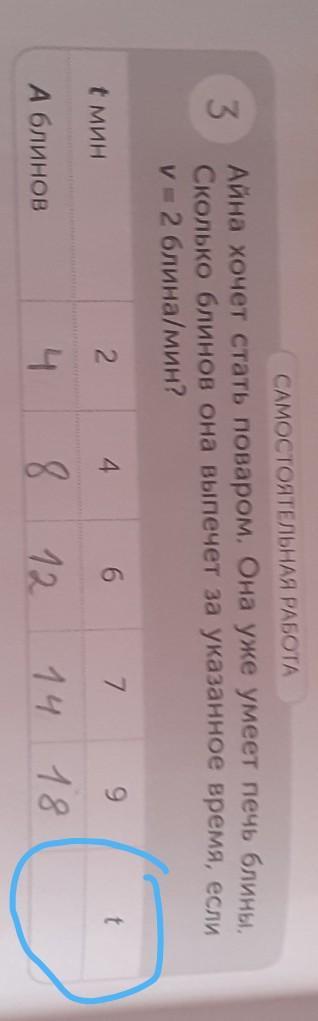 САМОСТОЯТЕЛЬНАЯ РАБОТА
3 Айна хочет стать поваром. Она уже умеет печь блины.
Сколько блинов она выпечет за указанное время, если
v = 2 блина/мин?
t мин 2 4 6 7 9 t
A блинов 4 8 12 14 18